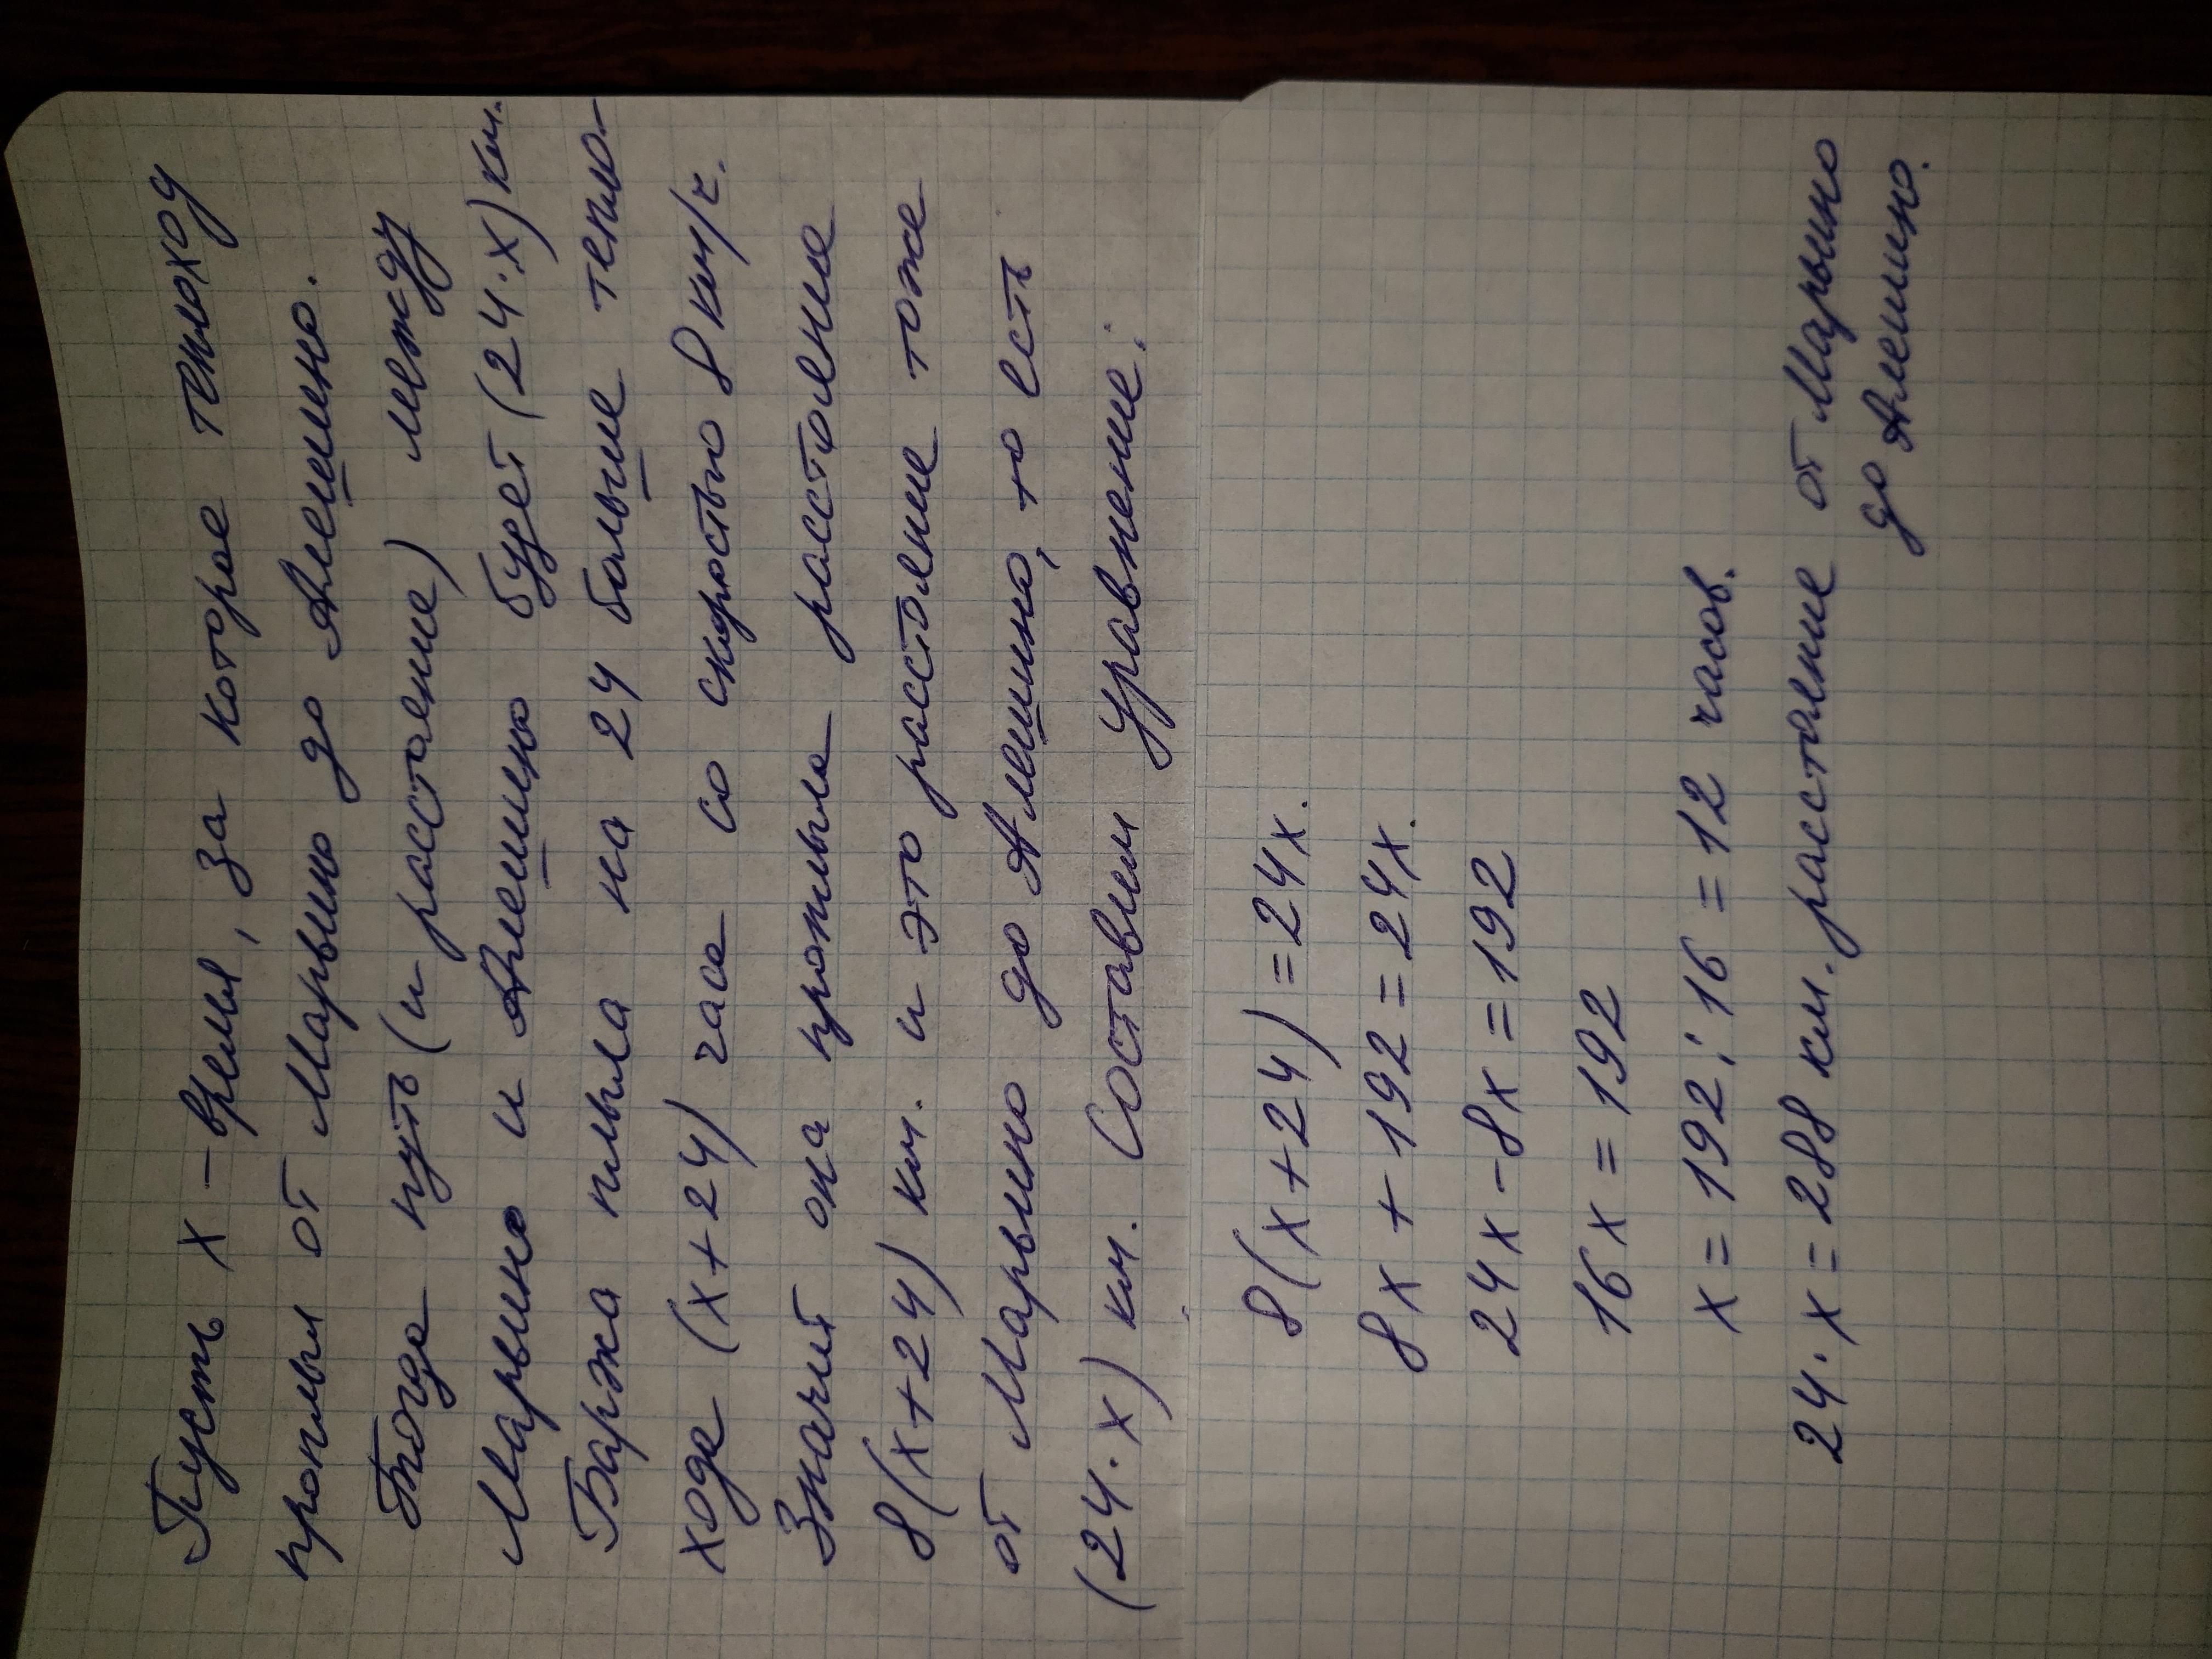 Пусть х – время, за которое теплоход
проплыл от Марьино до Алешино.
Тогда путь (и расстояние) между
Марьино и Алешино будет (24·х) км.
Баржа плыла на 24 больше тепло-
хода (х+24) часа со скоростью 8 км/ч.
Значит она проплыла расстояние
8(х+24) км. и это расстояние тоже
от Марьино до Алешино, то есть
(24·х) км. Составим уравнение:
8(х+24)=24х.
8х+192=24х.
24х-8х=192
16х=192
х=192:16=12 часов.
24·х=288 км. расстояние от Марьино
до Алешино.